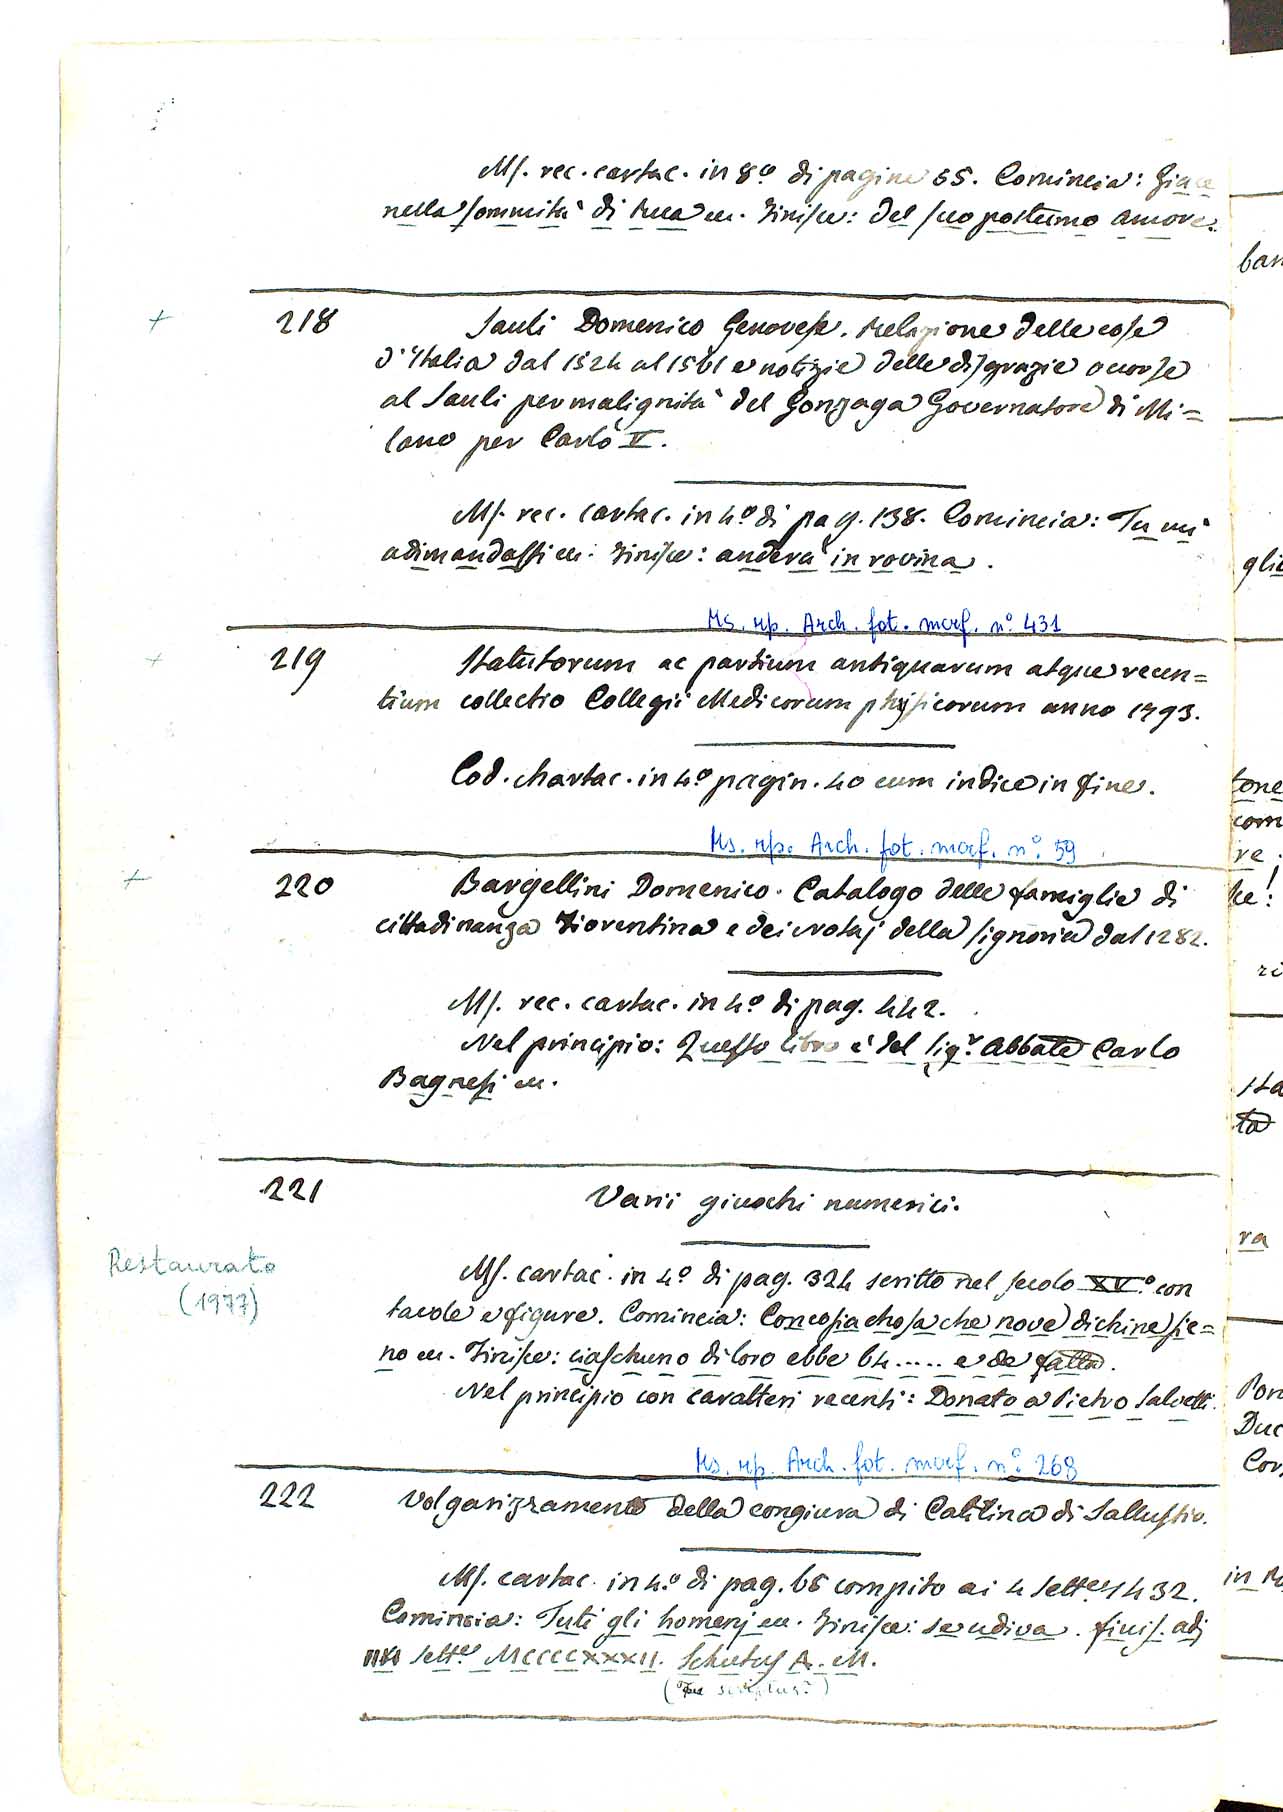 Ms. rec. cartac. in 8º di pagine 65. Comincia: Giace
nella sommità di Rua ec. Finisce: del suo postumo amore.
+ 218 Sauli Domenico Genovese. Relazione delle cose
d'Italia dal 1524 al 1561 e notizie delle disgrazie ocorse
al Sauli per malignità del Gonzaga Governatore di Mi=
lano per Carlo V.
Ms. rec. cartac. in 4º di pag. 138. Comincia: Tu mi
adimandassi ec. Finisce: anderà in rovina.
Ms. rip. Arch. fot. morf. nº 431
+ 219 Statutorum ac partium antiquarum atque recen=
tium collectio Collegii Medicorum physicorum anno 1793.
Cod. chartac. in 4º pagin. 40 cum indice in fine.
Ms. rip. Arch. fot. morf. nº 59
+ 220 Bargellini Domenico. Catalogo delle famiglie di
cittadinanza Fiorentina e dei Notaj della Signoria dal 1282.
Ms. rec. cartac. in 4º di pag. 442.
Nel principio: Questo libro è del Sigr. Abbate Carlo
Bagnesi ec.
221 Varii giuochi numerici.
Restaurato
(1977)
Ms. cartac. in 4º di pag. 324 scritto nel secolo XVº con
tavole e figure. Comincia: Concosiachosa che nove dichine sie=
no ec. Finisce: ciaschuno di loro ebbe 64..... e de fatta.
Nel principio con caratteri recenti: Donato a Pietro Salvetti.
Ms. rip. Arch. fot. morf. nº 268
222 Volgarizzamento della congiura di Catilina di Sallustio.
Ms. cartac. in 4º di pag. 65 compito ai 4 Sette. 1432.
Comincia: Tuti gli homenj ec. Finisce: se udiva. finis. adj
IIII Sette. MCCCCXXXII. Schutus A. M.